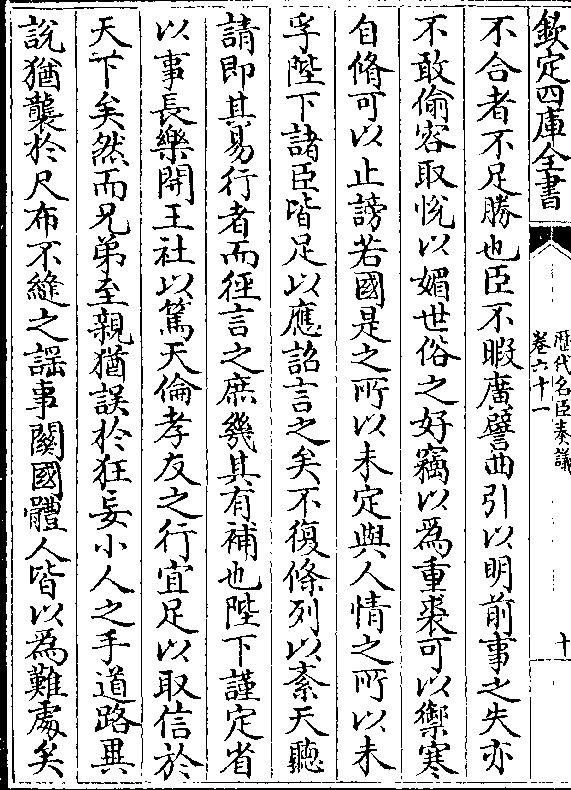 欽定四庫全書
歴代名臣奏議
卷六十一
十
不合者不足勝也臣不暇廣譬曲引以明前事之失亦
不敢偷容取悅以媚世俗之好竊以為重裘可以禦寒
自脩可以止謗若國是之所以未定與人情之所以未
孚陛下諸臣皆足以應詔言之矣不復條列以紊天聽
請即其易行者而徑言之庶幾其有補也陛下謹定省
以事長樂開王社以篤天倫孝友之行宜足以取信於
天下矣然而兄弟至親猶誤於狂妄小人之手道路異
說猶襲於尺布不縫之謡事闗國體人皆以為難處矣